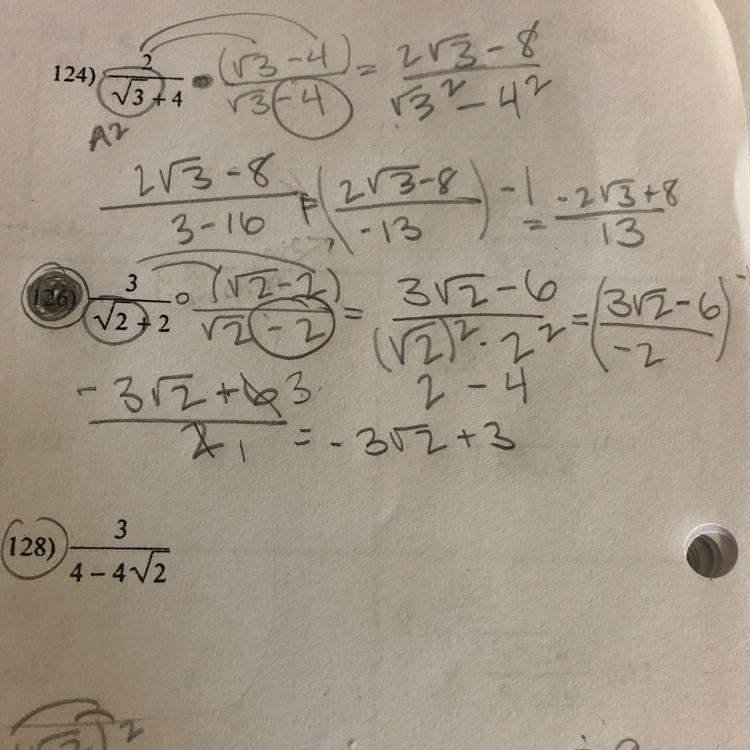 124) 2/(√3 + 4) • (√3 - 4)/(√3 - 4) = (2√3 - 8)/(√3² - 4²)
A2
(2√3 - 8)/(3 - 16) = ((2√3 - 8)/-13) -1 = (-2√3 + 8)/13
126) 3/(√2 + 2) ∘ (√2 - 2)/(√2 - 2) = (3√2 - 6)/((√2)² · 2²) = ((3√2 - 6)/-2) -
2 - 4
(-3√2 + 6 3)/(2 1) = -3√2 + 3
128) 3/(4 - 4√2)
√2)²